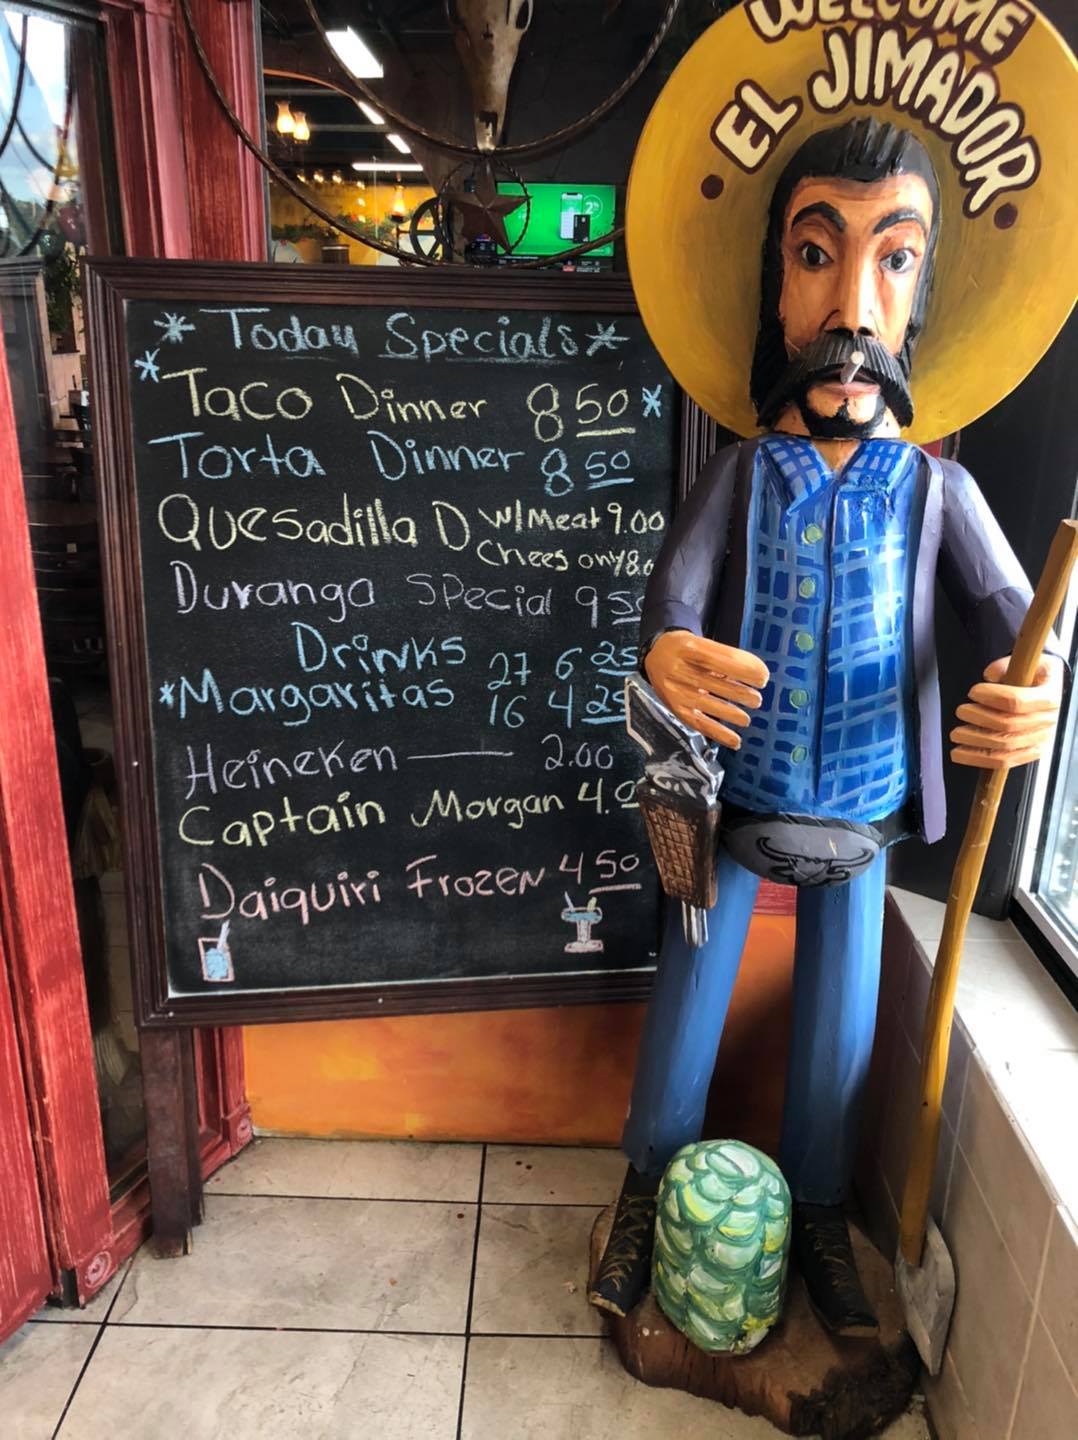 WELCOME
EL JIMADOR
* Today Specials *
* Taco Dinner 8 50 *
Torta Dinner 8 50
Quesadilla D w/Meat 9.00
Chees only 8.0
Durango Special 9 50
Drinks
*Margaritas 27 6 25
16 4 25
Heineken — 2.00
Captain Morgan 4.0
Daiquiri Frozen 4 50